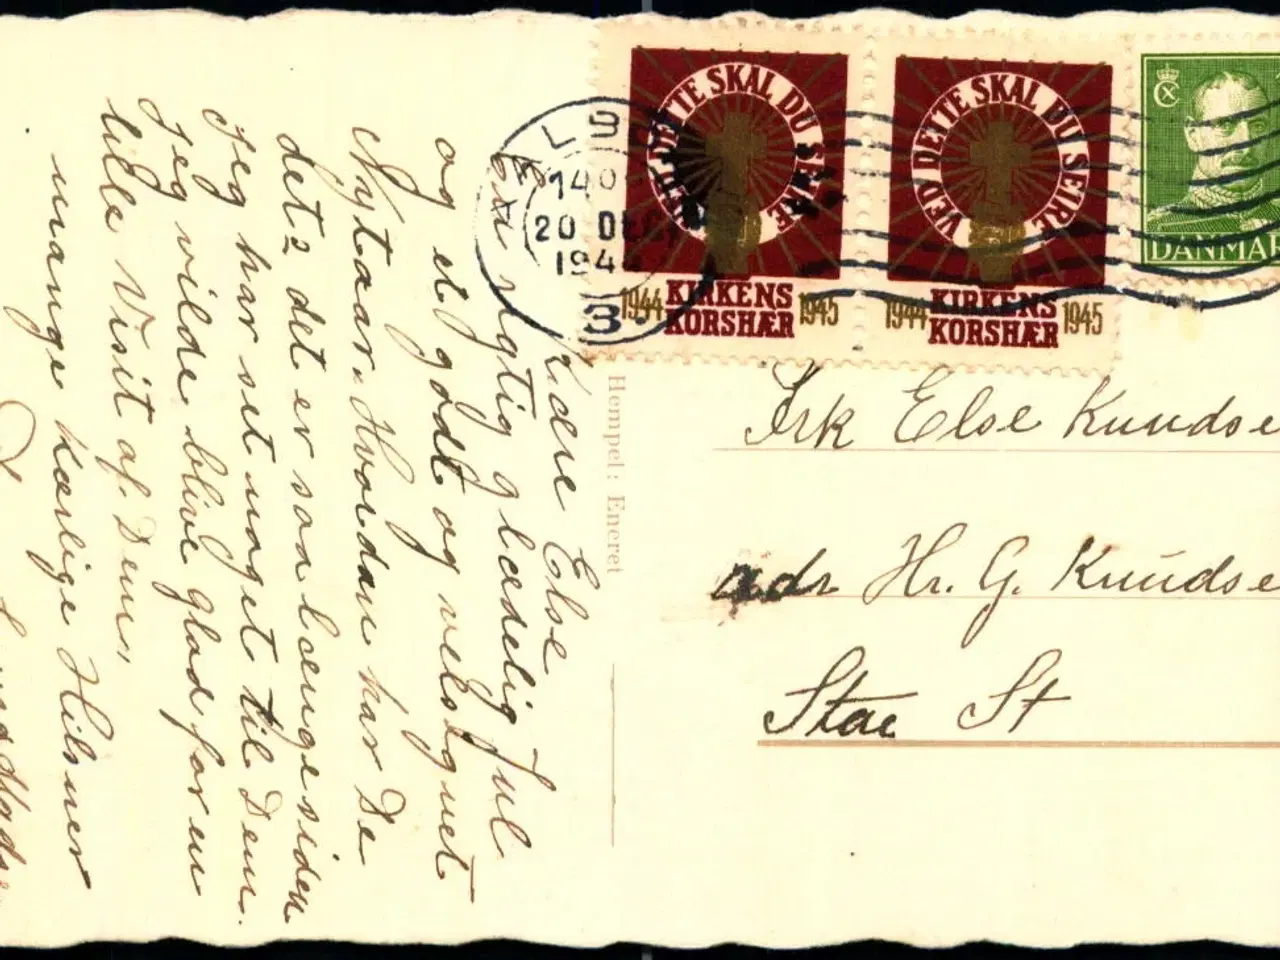 Kære Else
En rigtig glædelig Jul
og et godt og velsignet
Nytaar. Hvordan har De
det? det er saa længe siden
Jeg har set noget til Dem.
Jeg vilde blive glad for en
lille Visit af Dem,
mange kærlige Hilsner
AALBO
140
20 DEC
194
3.
VED DETTE SKAL DU SEJRE
1944 KIRKENS KORSHÆR 1945
VED DETTE SKAL DU SEJRE
1944 KIRKENS KORSHÆR 1945
CX
DANMAR
Hempel: Eneret
Frk Else Knudse
adr Hr. G. Knudse
Stae St